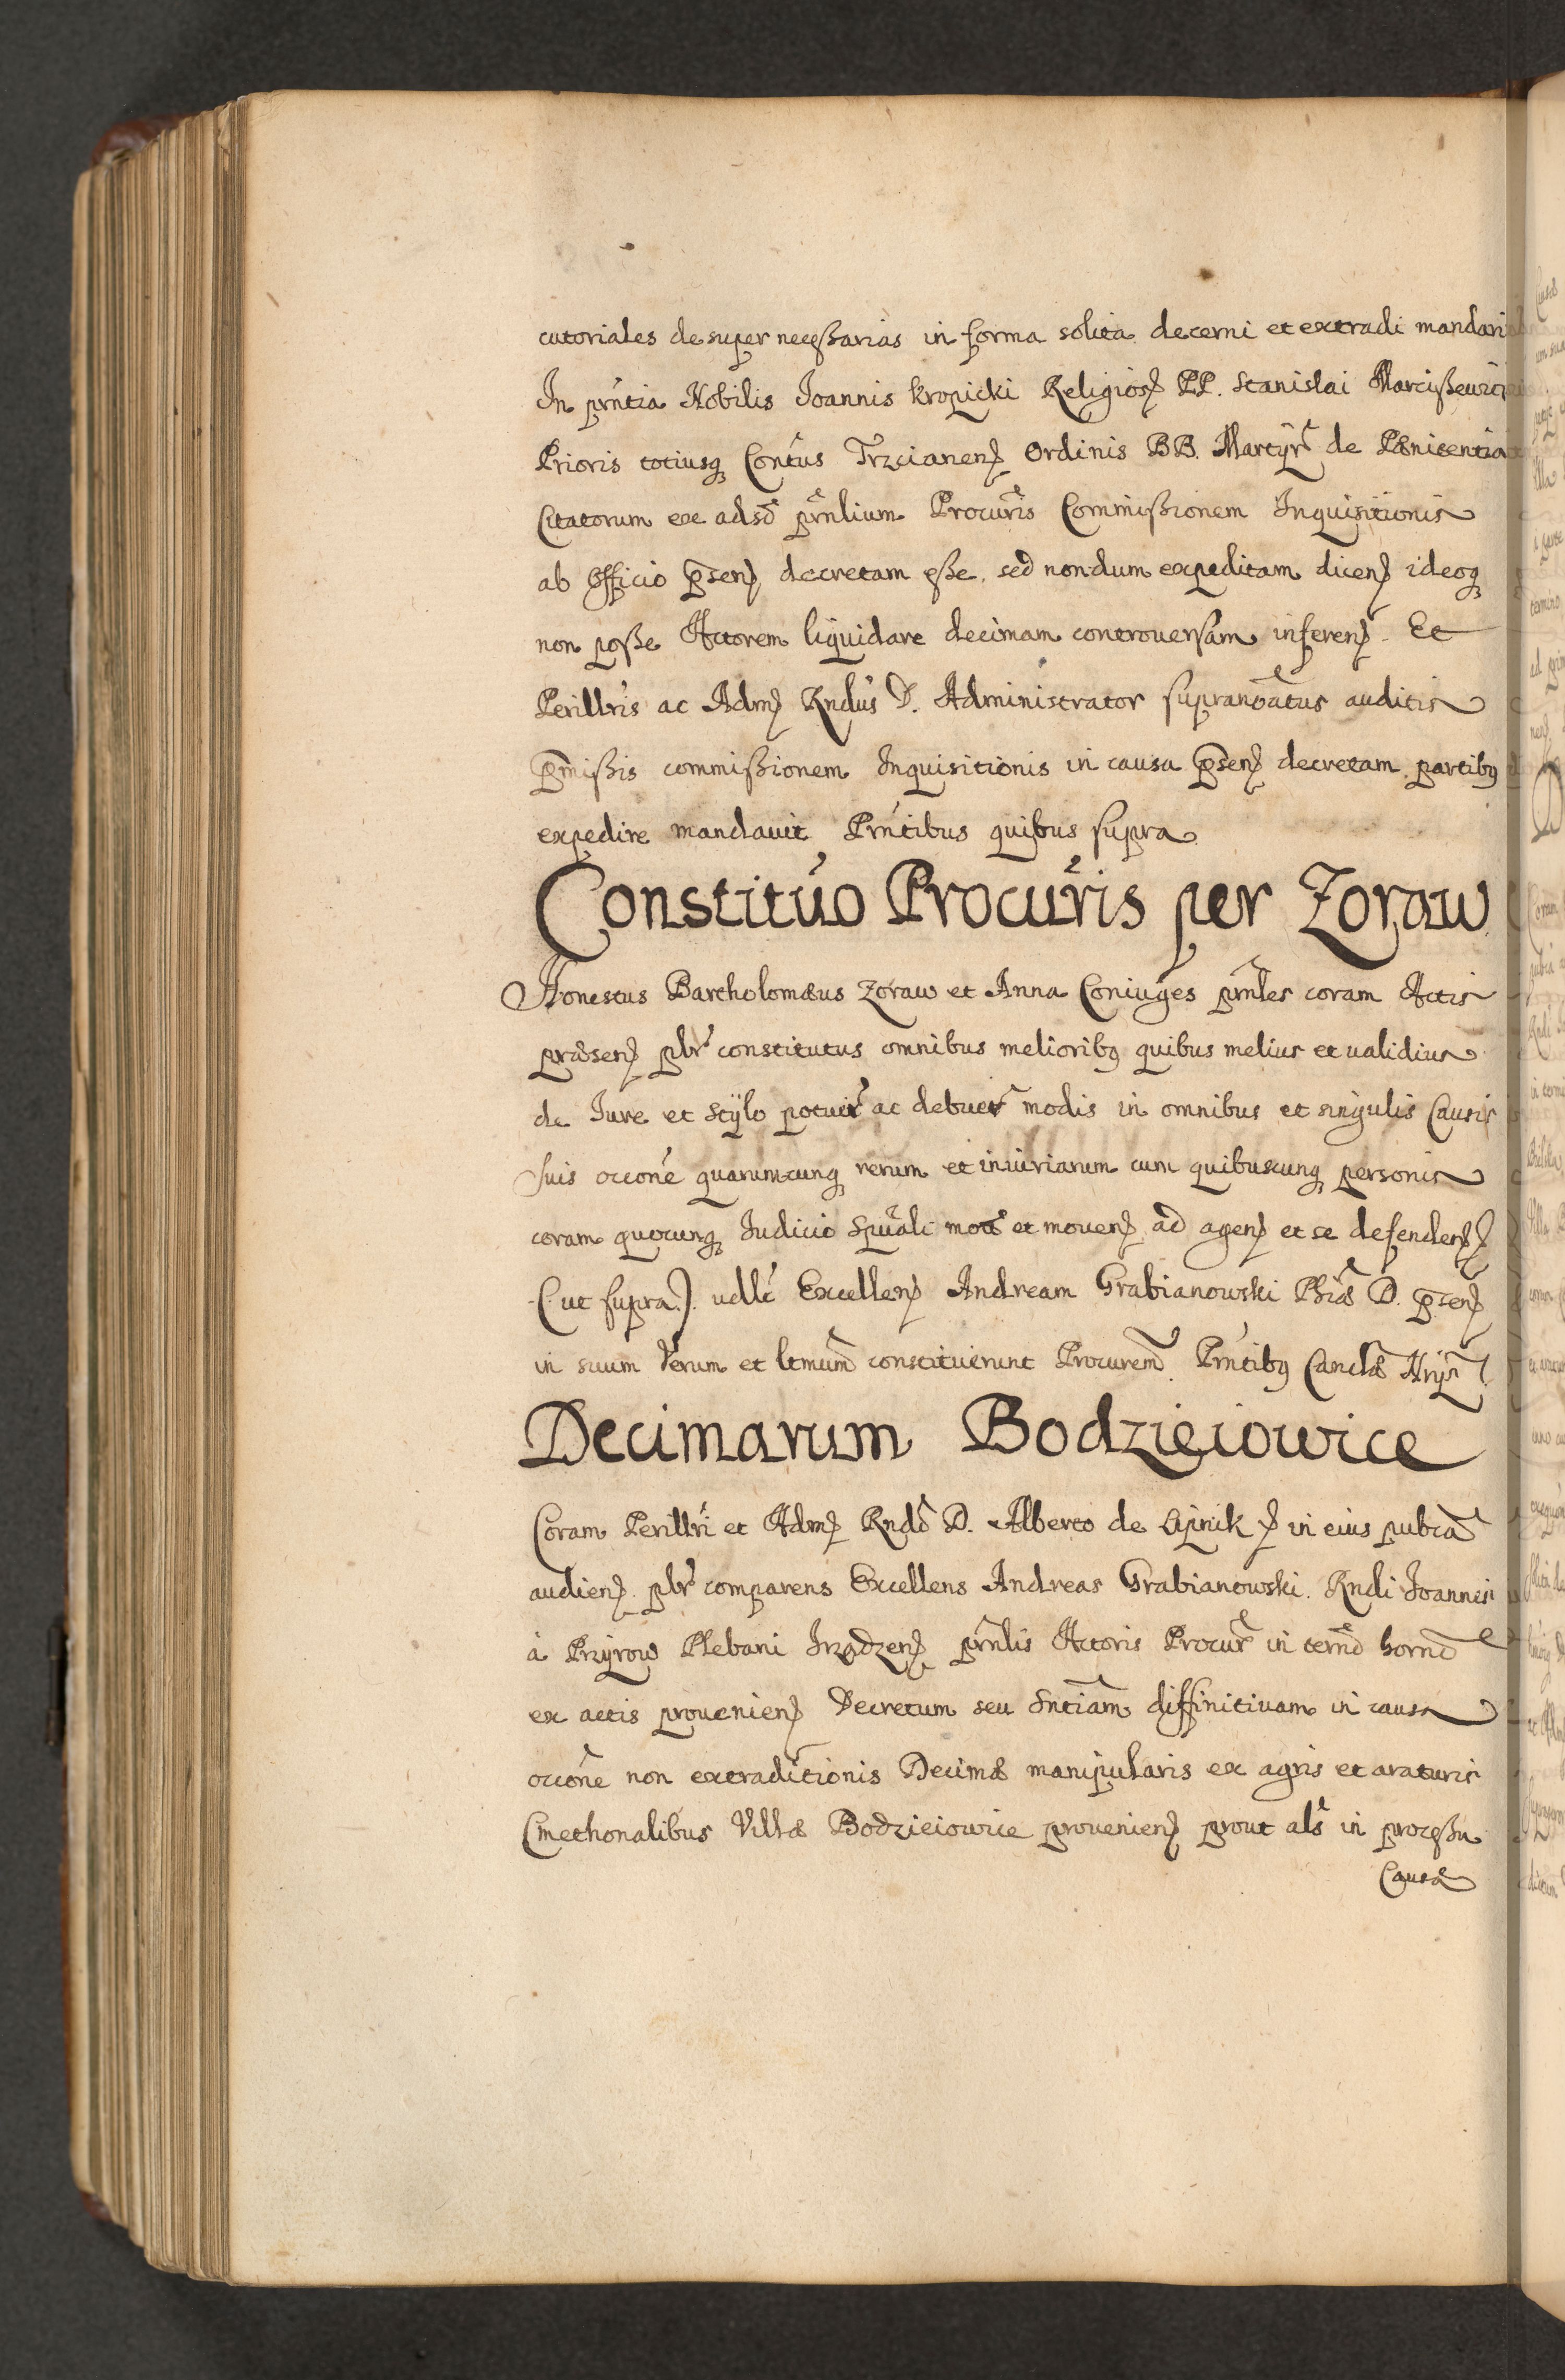 cutoriales desuper necessarias in forma solita decerni et extradi mandari
In pr̃ntia Nobilis Joannis Kropicki Religios. PP. Stanislai Marcissewicz
Prioris totiusq Contus Trzcianen. Ordinis BB. Martyr̃ de Pænitentia
Citatorum ex adso pr̃nlium Procuris Commissionem Inquisitionis
ab Officio p̃sen. decretam esse, sed nondum expeditam dicen. ideoq
non posse Actorem liquidare decimam controversam inferen. Et
Perillris ac Adm. Rndus D. Administrator supranoatus auditis
p̃missis commissionem Inquisitionis in causa p̃sen. decretam partibq
expedire mandavit Prntibus quibus supra
Constituo Procuris per Zoraw
Honestus Bartholomæus Zoraw et Anna Coniuges pr̃nles coram Actis
præsen. plr̃ constitutus omnibus melioribq quibus melius et validius
de Jure et Stÿlo potuer̃ ac debuer̃ modis in omnibus et singulis Causis
suis occone quarumcunq rerum et iniuriarum cum quibuscunq personis
coram quocunq Iudicio Spuali mot. et moven. ad agen. et se defenden.
(ut supra). vdlt Excellen. Andream Grabianowski Phiæ D. p̃sen.
in suum Verum et ltmum constituerunt Procurem. Prntibq Canclæ
Decimarum Bodzieiowice
Coram Perillri et Adm. Rndo D. Alberto de Lipnik in eius pubca
audien. plr̃ comparens Excellens Andreas Grabianowski. Rndi Joannis
à Przÿrow Plebani Irządzen. pr̃nlis Actoris Procur̃ in termo horno
ex actis provenien. Decretum seu Sntiam diffinitivam in causa
occone non extraditionis Decimæ manipularis ex agris et araturis
Cmethonalibus Villæ Bodzieiowice provenien. prout als in processu
Causæ